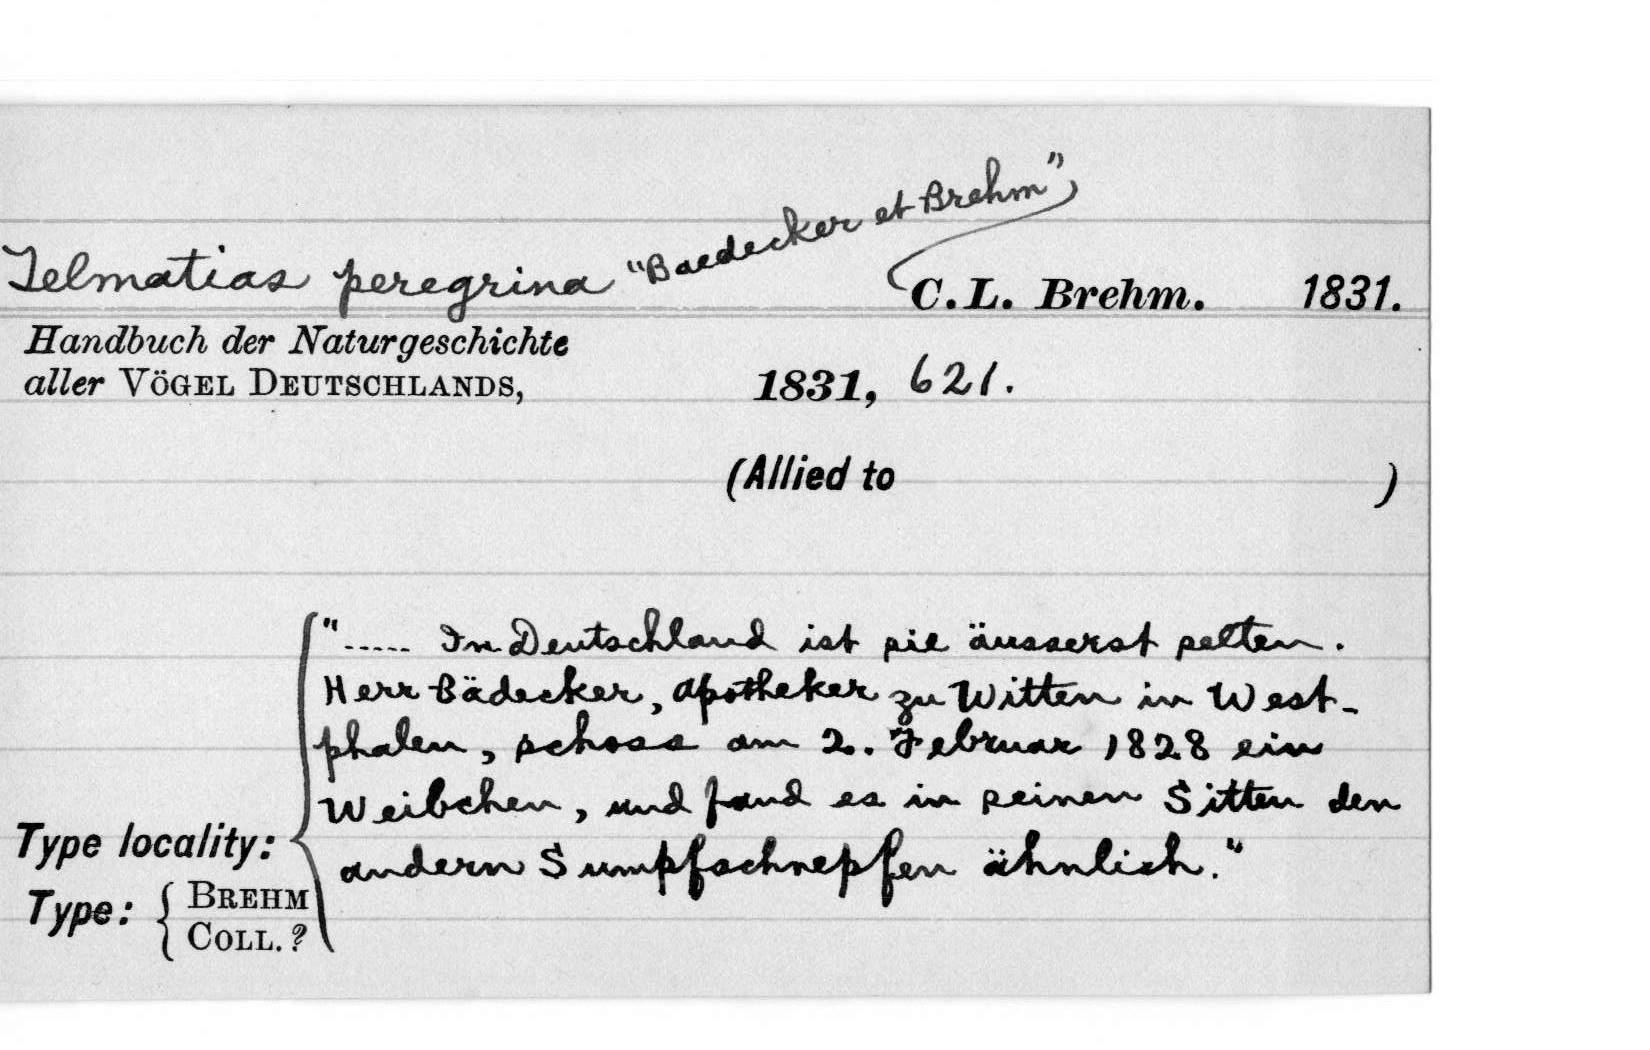 Telmatias peregrina "Baedecker et Brehm"
C. L. Brehm. 1831.
Handbuch der Naturgeschichte
aller VÖGEL DEUTSCHLANDS, 1831, 621.
(Allied to )
"..... In Deutschland ist sie äusserst selten.
Herr Bädecker, Apotheker zu Witten in West-
phalen, schoss am 2. Februar 1828 ein
Weibchen, und fand es in seinen Sitten den
andern Sumpfschnepfen ähnlich."
Type locality:
Type: { BREHM
COLL. ?